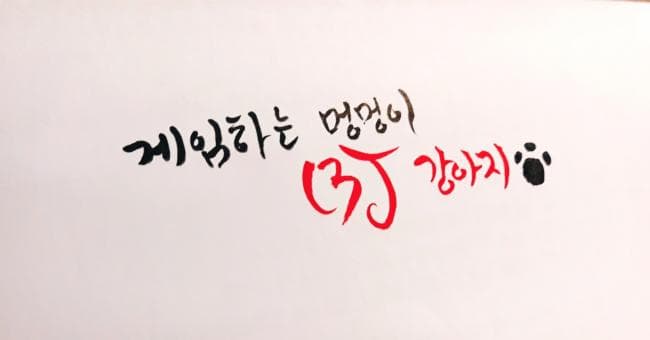 게임하는 멍멍이
(주) 강아지